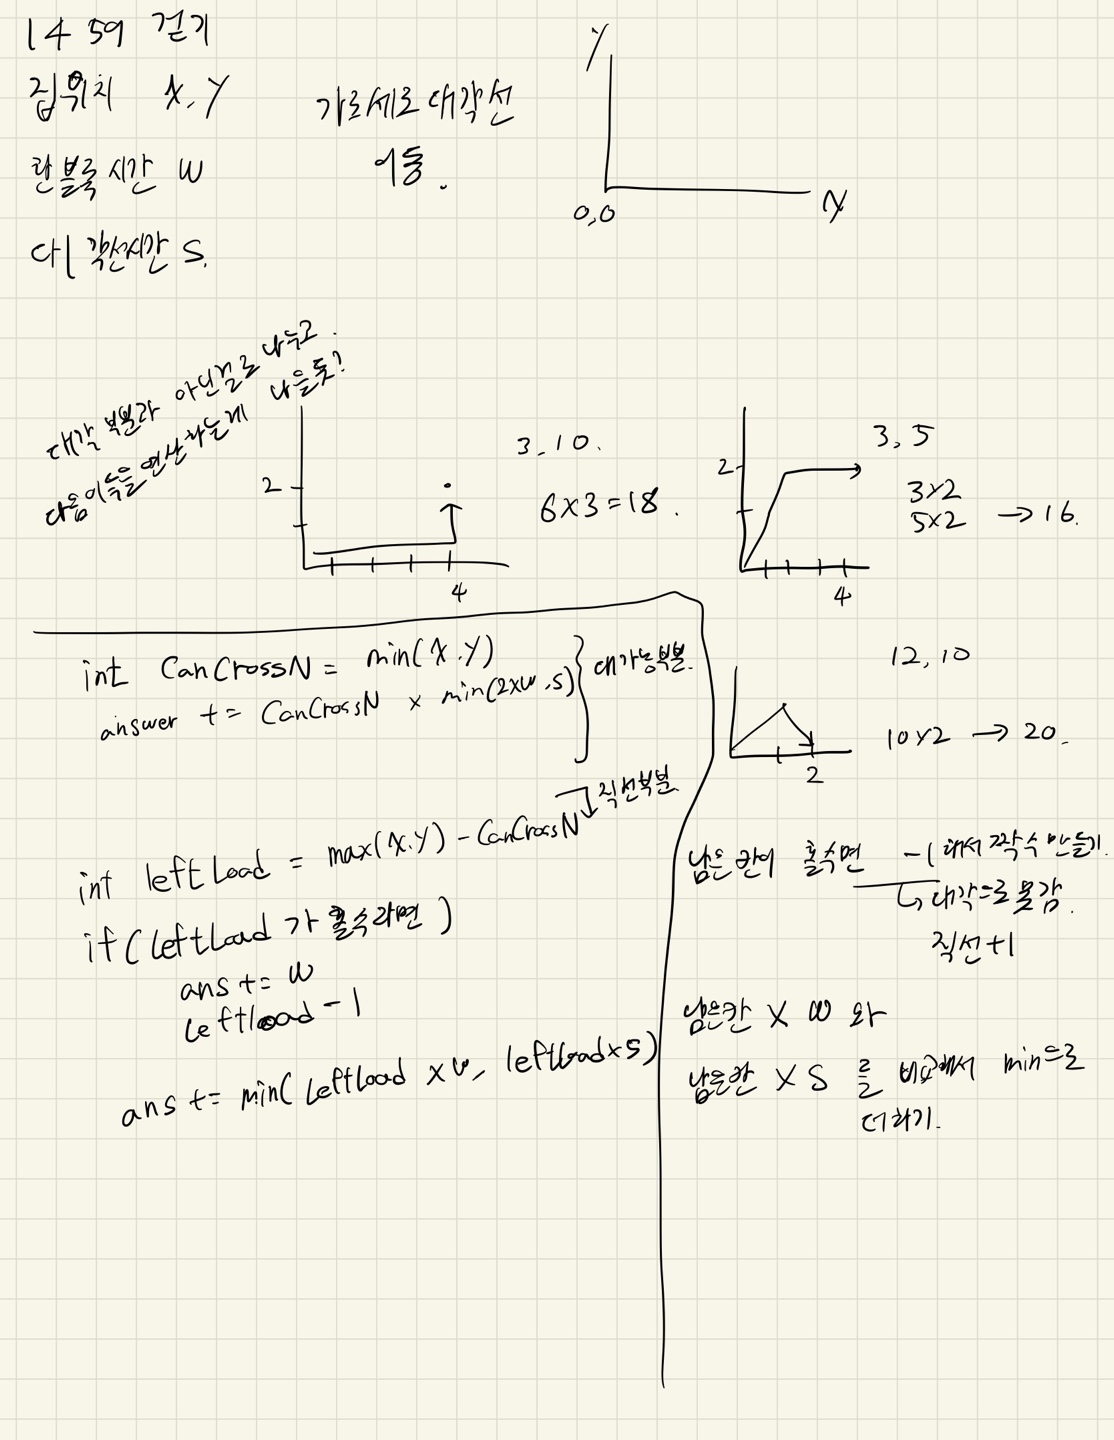 1459 걷기
집위치 X, Y
한블록시간 W
대각선시간 S.
가로세로대각선
이동.
Y
0,0
X
대각 부분과 아닌걸로 나누고.
다음이득을 연산하는게 나을듯?
2
4
3, 10.
6x3=18.
2
4
3, 5
3x2
5x2 → 16.
int CanCrossN = min(X.Y)
answer += CanCrossN x min(2xw, s)
대가능부분.
12, 10
10x2 → 20.
2
직선부분.
int leftLoad = max(X.Y) - CanCrossN
if(leftLoad 가 홀수라면)
ans += W
leftload - 1
ans += min( leftLoad xw, leftloadxs)
남은칸이 홀수면 -1 해서 짝수만들기.
↳ 대각으로못감.
직선+1
남은칸 X W 와
남은칸 X S 를 비교해서 min으로
더하기.